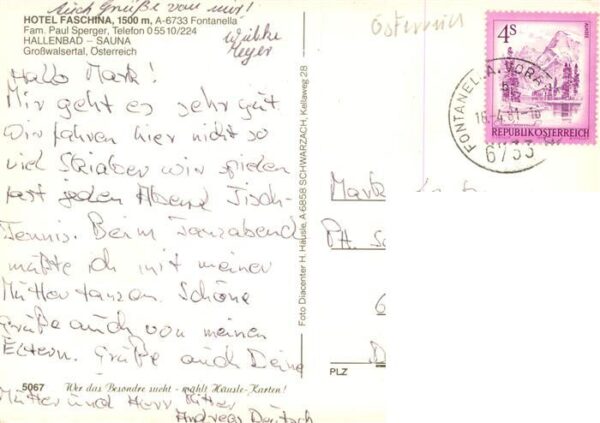 Auch Grüße von mir!
Wiebke
Meyer
HOTEL FASCHINA, 1500 m, A-6733 Fontanella
Fam. Paul Sperger, Telefon 0 55 10/224
HALLENBAD – SAUNA
Großwalsertal, Österreich
Österreich
Hallo Mark!
Mir geht es sehr gut
Wir fahren hier nicht so
viel Ski aber wir spielen
fast jeden Abend Tisch-
Tennis. Beim Tanzabend
mußte ich mit meiner
Mutter tanzen. Schöne
Grüße auch von meinen
Eltern. Grüße auch Deine
Mutter und Herr Ritter
Andreas
5067 Wer das Besondre sucht - wählt Häusle-Karten!
Foto Diacenter H. Häusle, A-6858 SCHWARZACH, Kellaweg 28
4S
REPUBLIK ÖSTERREICH
FONTANELLA, VORA
16.-4.81-16
6733
Mark
PLZ